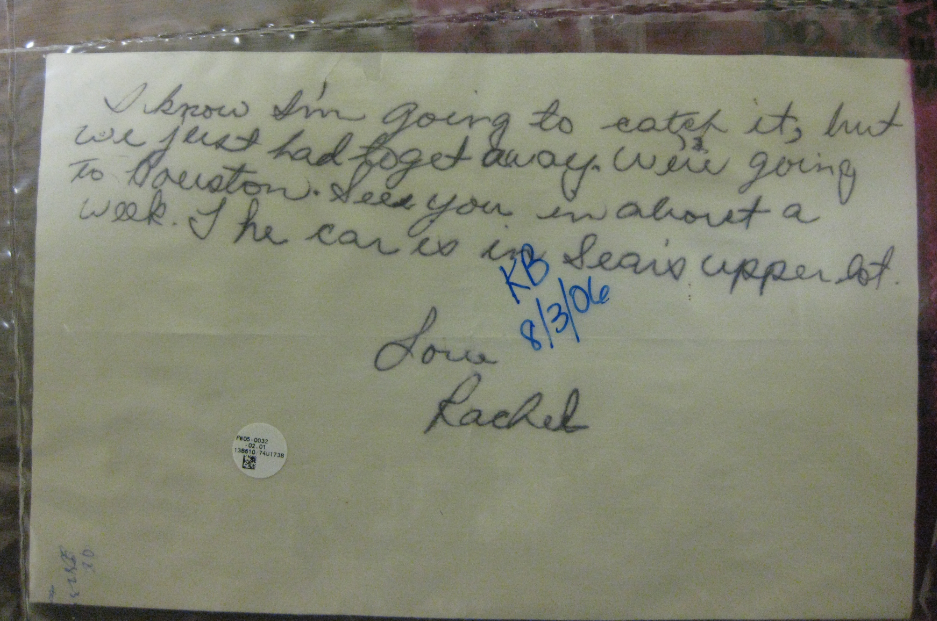 I know I'm going to catch it, but
we just had to get away. We're going
to Houston. See you in about a
week. The car is in Sear's upper lot.
KB
8/3/06
Love
Rachel
FW05-0032
-02.01
SEA